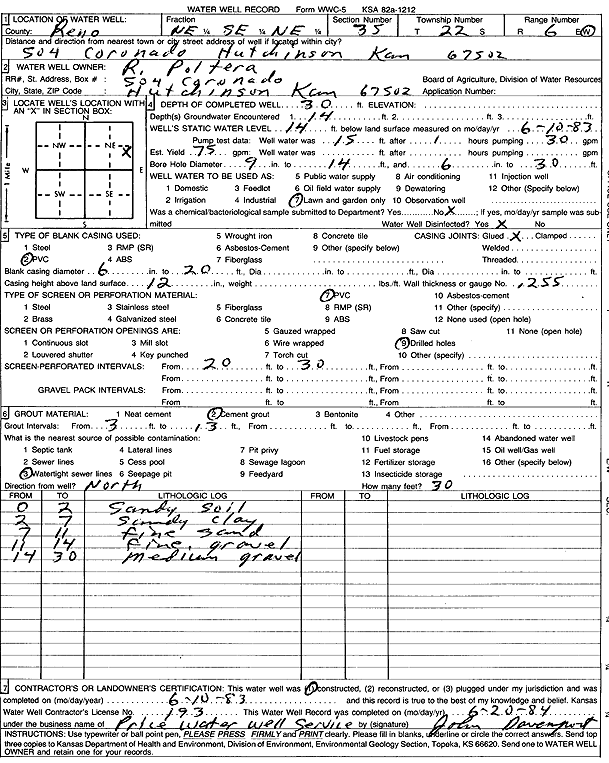 WATER WELL RECORD Form WWC-5 KSA 82a-1212
1 LOCATION OF WATER WELL: Fraction Section Number Township Number Range Number
County: Reno NE ¼ SE ¼ NE ¼ 35 T 22 S R 6 E/W
Distance and direction from nearest town or city street address of well if located within city?
504 Coronado Hutchinson Kan 67502
2 WATER WELL OWNER: R. Poltera
RR#, St. Address, Box # : 504 Coronado Board of Agriculture, Division of Water Resources
City, State, ZIP Code : Hutchinson Kan 67502 Application Number:
3 LOCATE WELL'S LOCATION WITH AN "X" IN SECTION BOX:
N
NW NE X
W E
SW SE
S
1 Mile
4 DEPTH OF COMPLETED WELL 30 ft. ELEVATION:
Depth(s) Groundwater Encountered 1. 14 ft. 2. ft. 3. ft.
WELL'S STATIC WATER LEVEL 14 ft. below land surface measured on mo/day/yr 6-10-83
Pump test data: Well water was 15 ft. after 1 hours pumping 30 gpm
Est. Yield 75 gpm: Well water was ft. after hours pumping gpm
Bore Hole Diameter 9 in. to 14 ft., and 6 in. to 30 ft.
WELL WATER TO BE USED AS: 5 Public water supply 8 Air conditioning 11 Injection well
1 Domestic 3 Feedlot 6 Oil field water supply 9 Dewatering 12 Other (Specify below)
2 Irrigation 4 Industrial 7 Lawn and garden only 10 Observation well
Was a chemical/bacteriological sample submitted to Department? Yes No X; If yes, mo/day/yr sample was sub-
mitted Water Well Disinfected? Yes X No
5 TYPE OF BLANK CASING USED: 5 Wrought iron 8 Concrete tile CASING JOINTS: Glued X Clamped
1 Steel 3 RMP (SR) 6 Asbestos-Cement 9 Other (specify below) Welded
2 PVC 4 ABS 7 Fiberglass Threaded
Blank casing diameter 6 in. to 20 ft., Dia in. to ft., Dia in. to ft.
Casing height above land surface 12 in., weight lbs./ft. Wall thickness or gauge No. .255
TYPE OF SCREEN OR PERFORATION MATERIAL: 7 PVC 10 Asbestos-cement
1 Steel 3 Stainless steel 5 Fiberglass 8 RMP (SR) 11 Other (specify)
2 Brass 4 Galvanized steel 6 Concrete tile 9 ABS 12 None used (open hole)
SCREEN OR PERFORATION OPENINGS ARE: 5 Gauzed wrapped 8 Saw cut 11 None (open hole)
1 Continuous slot 3 Mill slot 6 Wire wrapped 9 Drilled holes
2 Louvered shutter 4 Key punched 7 Torch cut 10 Other (specify)
SCREEN-PERFORATED INTERVALS: From 20 ft. to 30 ft., From ft. to ft.
From ft. to ft., From ft. to ft.
GRAVEL PACK INTERVALS: From ft. to ft., From ft. to ft.
From ft. to ft., From ft. to ft.
6 GROUT MATERIAL: 1 Neat cement 2 Cement grout 3 Bentonite 4 Other
Grout Intervals: From 3 ft. to 13 ft., From ft. to ft., From ft. to ft.
What is the nearest source of possible contamination: 10 Livestock pens 14 Abandoned water well
1 Septic tank 4 Lateral lines 7 Pit privy 11 Fuel storage 15 Oil well/Gas well
2 Sewer lines 5 Cess pool 8 Sewage lagoon 12 Fertilizer storage 16 Other (specify below)
3 Watertight sewer lines 6 Seepage pit 9 Feedyard 13 Insecticide storage
Direction from well? North How many feet? 30
FROM TO LITHOLOGIC LOG FROM TO LITHOLOGIC LOG
0 2 Sandy soil
2 7 Sandy clay
7 11 Fine sand
11 14 Fine gravel
14 30 Medium gravel
7 CONTRACTOR'S OR LANDOWNER'S CERTIFICATION: This water well was (1) constructed, (2) reconstructed, or (3) plugged under my jurisdiction and was
completed on (mo/day/year) 6-10-83 and this record is true to the best of my knowledge and belief. Kansas
Water Well Contractor's License No. 193 This Water Well Record was completed on (mo/day/yr) 6-20-84
under the business name of Price Water Well Service by (signature) John Davenport
INSTRUCTIONS: Use typewriter or ball point pen, PLEASE PRESS FIRMLY and PRINT clearly. Please fill in blanks, underline or circle the correct answers. Send top
three copies to Kansas Department of Health and Environment, Division of Environment, Environmental Geology Section, Topeka, KS 66620. Send one to WATER WELL
OWNER and retain one for your records.